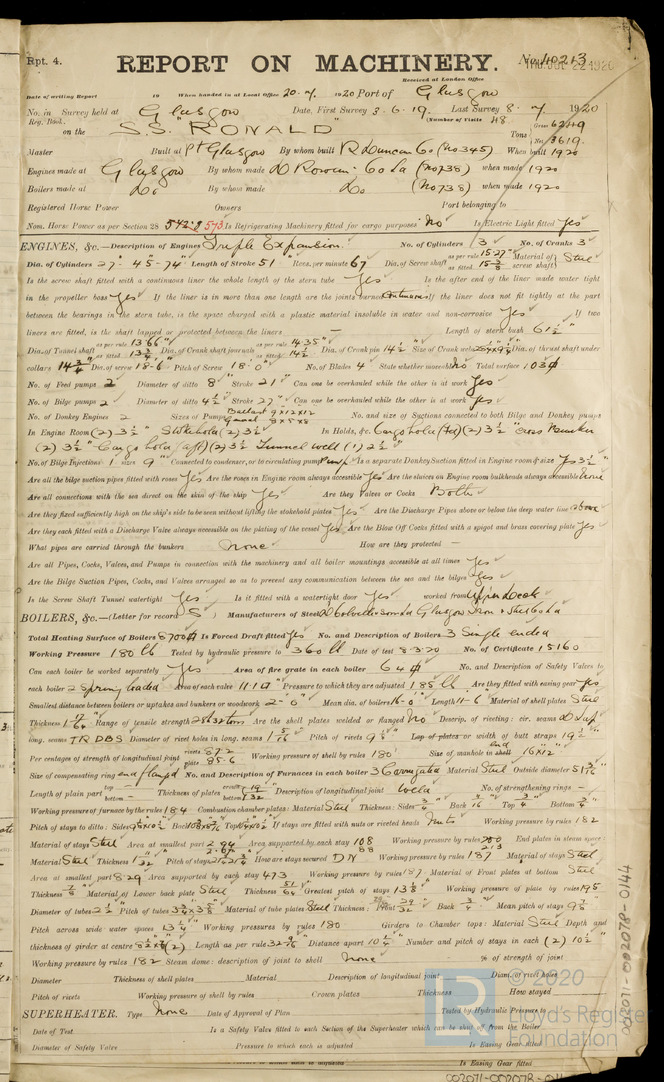 Rpt. 4.
REPORT ON MACHINERY.
No. 40213
THU. JUL 22 1920
Received at London Office
Date of writing Report 19 When handed in at Local Office 20. 7. 1920 Port of Glasgow
No. in Survey held at Glasgow Date, First Survey 3. 6. 19. Last Survey 8. 7. 1920
Reg. Book. (Number of Visits 48
on the S.S. "RONALD" Tons Gross 6249 Net 3619.
Master Built at Pt Glasgow By whom built R Duncan & Co (No 345) When built 1920
Engines made at Glasgow By whom made D Rowan & Co Ld (No 738) when made 1920
Boilers made at Do By whom made Do (No 738) when made 1920
Registered Horse Power Owners Port belonging to
Nom. Horse Power as per Section 28 542.8 573 Is Refrigerating Machinery fitted for cargo purposes No Is Electric Light fitted Yes
ENGINES, &c.—Description of Engines Triple Expansion. No. of Cylinders 3 No. of Cranks 3
Dia. of Cylinders 27"- 45"-74" Length of Stroke 51" Revs. per minute 67 Dia. of Screw shaft as per rule 15.27" as fitted 15 3/8 Material of screw shaft Steel
Is the screw shaft fitted with a continuous liner the whole length of the stern tube Yes Is the after end of the liner made water tight
in the propeller boss Yes If the liner is in more than one length are the joints burned Continuous If the liner does not fit tightly at the part
between the bearings in the stern tube, is the space charged with a plastic material insoluble in water and non-corrosive Yes If two
liners are fitted, is the shaft lapped or protected between the liners — Length of stern bush 61 1/2"
Dia. of Tunnel shaft as per rule 13.66" as fitted 13 3/4 Dia. of Crank shaft journals as per rule 14.35" as fitted 14 1/2 Dia. of Crank pin 14 1/2 Size of Crank webs Dia. of thrust shaft under
collars 14 3/4 Dia. of screw 18-6" Pitch of Screw 18-0" No. of Blades 4 State whether moveable No Total surface 103
No. of Feed pumps 2 Diameter of ditto 8" Stroke 21" Can one be overhauled while the other is at work Yes
No. of Bilge pumps 2 Diameter of ditto 4 1/2 Stroke 27" Can one be overhauled while the other is at work Yes
No. of Donkey Engines 2 Sizes of Pumps Ballast 9x12x12 General 8x5x8 No. and size of Suctions connected to both Bilge and Donkey pumps
In Engine Room (2) 3 1/2" Stokehold (2) 3 1/2" In Holds, &c. Cargo hold (fwd) (2) 3 1/2" Cross Bunker
(2) 3 1/2" Cargo hold (aft) (2) 3 1/2" Tunnel well (1) 2 1/2"
No. of Bilge Injections 1 sizes 9" Connected to condenser, or to circulating pump Pump Is a separate Donkey Suction fitted in Engine room & size Yes 3 1/2"
Are all the bilge suction pipes fitted with roses Yes Are the roses in Engine room always accessible Yes Are the sluices on Engine room bulkheads always accessible None
Are all connections with the sea direct on the skin of the ship Yes Are they Valves or Cocks Both
Are they fixed sufficiently high on the ship's side to be seen without lifting the stokehold plates Yes Are the Discharge Pipes above or below the deep water line above
Are they each fitted with a Discharge Valve always accessible on the plating of the vessel Yes Are the Blow Off Cocks fitted with a spigot and brass covering plate Yes
What pipes are carried through the bunkers None How are they protected —
Are all Pipes, Cocks, Valves, and Pumps in connection with the machinery and all boiler mountings accessible at all times Yes
Are the Bilge Suction Pipes, Cocks, and Valves arranged so as to prevent any communication between the sea and the bilges Yes
Is the Screw Shaft Tunnel watertight Yes Is it fitted with a watertight door Yes worked from Upper Deck
BOILERS, &c.—(Letter for record S) Manufacturers of Steel D Colville & Sons Ld Glasgow Iron & Steel Co Ld
Total Heating Surface of Boilers 8700 Is Forced Draft fitted Yes No. and Description of Boilers 3 Single ended
Working Pressure 180 lb Tested by hydraulic pressure to 360 lb Date of test 8.3.20 No. of Certificate 15160
Can each boiler be worked separately Yes Area of fire grate in each boiler 64 No. and Description of Safety Valves to
each boiler 2 Spring loaded Area of each valve 11.10" Pressure to which they are adjusted 185 lb Are they fitted with easing gear Yes
Smallest distance between boilers or uptakes and bunkers or woodwork 2-0" Mean dia. of boilers 16-0" Length 11-6" Material of shell plates Steel
Thickness Range of tensile strength 28 to 32 tons Are the shell plates welded or flanged No Descrip. of riveting: cir. seams D Lap
long. seams TR DBS Diameter of rivet holes in long. seams 1 5/16" Pitch of rivets 9 1/8" Lap of plates or width of butt straps 19 1/2"
Per centages of strength of longitudinal joint rivets 87.2 plate 85.6 Working pressure of shell by rules 180 Size of manhole in shell end 16"x12"
Size of compensating ring end flanged No. and Description of Furnaces in each boiler 3 Corrugated Material Steel Outside diameter
Length of plain part top — bottom — Thickness of plates crown bottom 19/32 Description of longitudinal joint Weld No. of strengthening rings —
Working pressure of furnace by the rules 184 Combustion chamber plates: Material Steel Thickness: Sides 3/4 Back Top 3/4" Bottom
Pitch of stays to ditto: Sides Back Top If stays are fitted with nuts or riveted heads Nuts Working pressure by rules 182
Material of stays Steel Area at smallest part Area supported by each stay 108 88 Working pressure by rules 213 End plates in steam space:
Material Steel Thickness Pitch of stays How are stays secured DN Working pressure by rules 187 Material of stays Steel
Area at smallest part 8.29 Area supported by each stay 473 Working pressure by rules 187 Material of Front plates at bottom Steel
Thickness Material of Lower back plate Steel Thickness Greatest pitch of stays 13 1/8" Working pressure of plate by rules 195
Diameter of tubes 2 1/2" Pitch of tubes Material of tube plates Steel Thickness: Front 29/32 Back 3/4 Mean pitch of stays
Pitch across wide water spaces 13 3/4 Working pressures by rules 180 Girders to Chamber tops: Material Steel Depth and
thickness of girder at centre Length as per rule Distance apart 10 1/4" Number and pitch of stays in each (2) 10 1/2"
Working pressure by rules 182 Steam dome: description of joint to shell None % of strength of joint
Diameter Thickness of shell plates Material Description of longitudinal joint Diam. of rivet holes
Pitch of rivets Working pressure of shell by rules Crown plates Thickness How stayed
SUPERHEATER. Type None Date of Approval of Plan Tested by Hydraulic Pressure to
Date of Test Is a Safety Valve fitted to each Section of the Superheater which can be shut off from the Boiler
Diameter of Safety Valve Pressure to which each is adjusted Is Easing Gear fitted
Is Easing Gear fitted
002071-002078-0144
© 2020
Lloyd's Register
Foundation